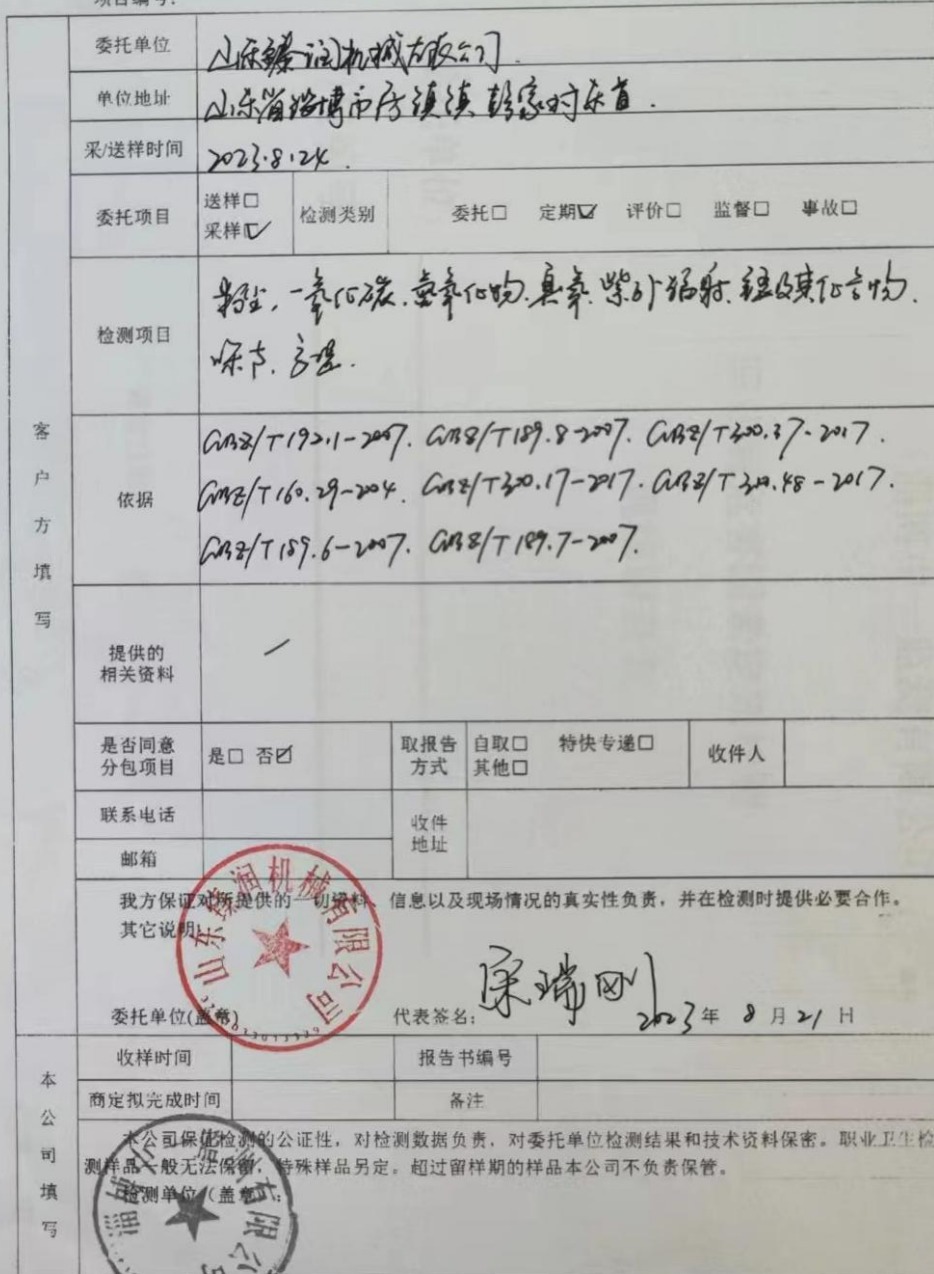 项目编号:
客户方填写
委托单位 山东臻润机械有限公司.
单位地址 山东省淄博市房镇镇彭家村东首.
采/送样时间 2023.8.24.
委托项目 送样□ 采样☑ 检测类别 委托□ 定期☑ 评价□ 监督□ 事故□
检测项目 粉尘, 一氧化碳. 氮氧化物. 臭氧. 紫外辐射. 锰及其化合物.
噪声. 高温.
依据 GBZ/T192.1-2007. GBZ/T189.8-2007. GBZ/T300.37-2017.
GBZ/T160.29-2004. GBZ/T300.17-2017. GBZ/T300.48-2017.
GBZ/T189.6-2007. GBZ/T189.7-2007.
提供的
相关资料 /
是否同意
分包项目 是□ 否☑ 取报告
方式 自取□ 特快专递□
其他□ 收件人
联系电话 收件
地址
邮箱
我方保证对所提供的一切资料、信息以及现场情况的真实性负责，并在检测时提供必要合作。
其它说明:
山东臻润机械有限公司
委托单位(盖章) 代表签名: 宋瑞刚 2023年 8月21日
本公司填写
收样时间 报告书编号
商定拟完成时间 备注
本公司保证检测的公证性，对检测数据负责，对委托单位检测结果和技术资料保密。职业卫生检
测样品一般无法保留，特殊样品另定。超过留样期的样品本公司不负责保管。
检测单位（盖章）: